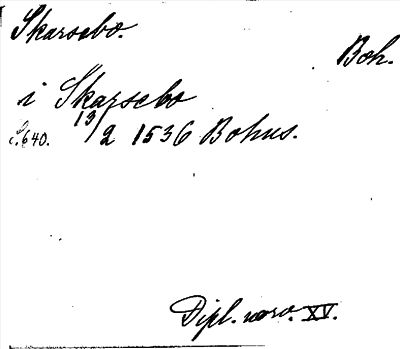 Skarsebo.
Boh.
i Skarsebo
s. 640. 13/2 1536 Bohus.
Dipl. norv. XV.